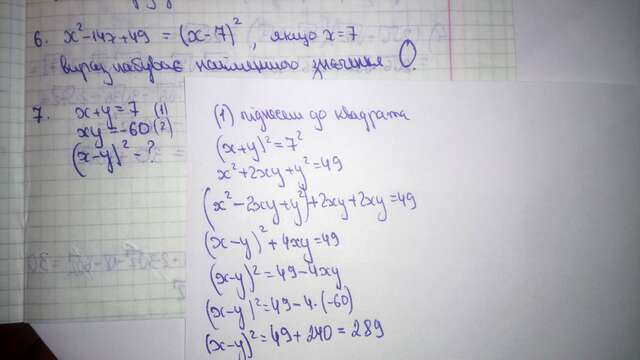 6. x²-14x+49 = (x-7)², якщо x=7
вираз набуває найменшого значення 0.
7. x+y=7 (1)
xy=-60 (2)
(x-y)²=?
(1) підносем до квадрата
(x+y)²=7²
x²+2xy+y²=49
(x²-2xy+y²)+2xy+2xy=49
(x-y)²+4xy=49
(x-y)²=49-4xy
(x-y)²=49-4·(-60)
(x-y)²=49+240=289